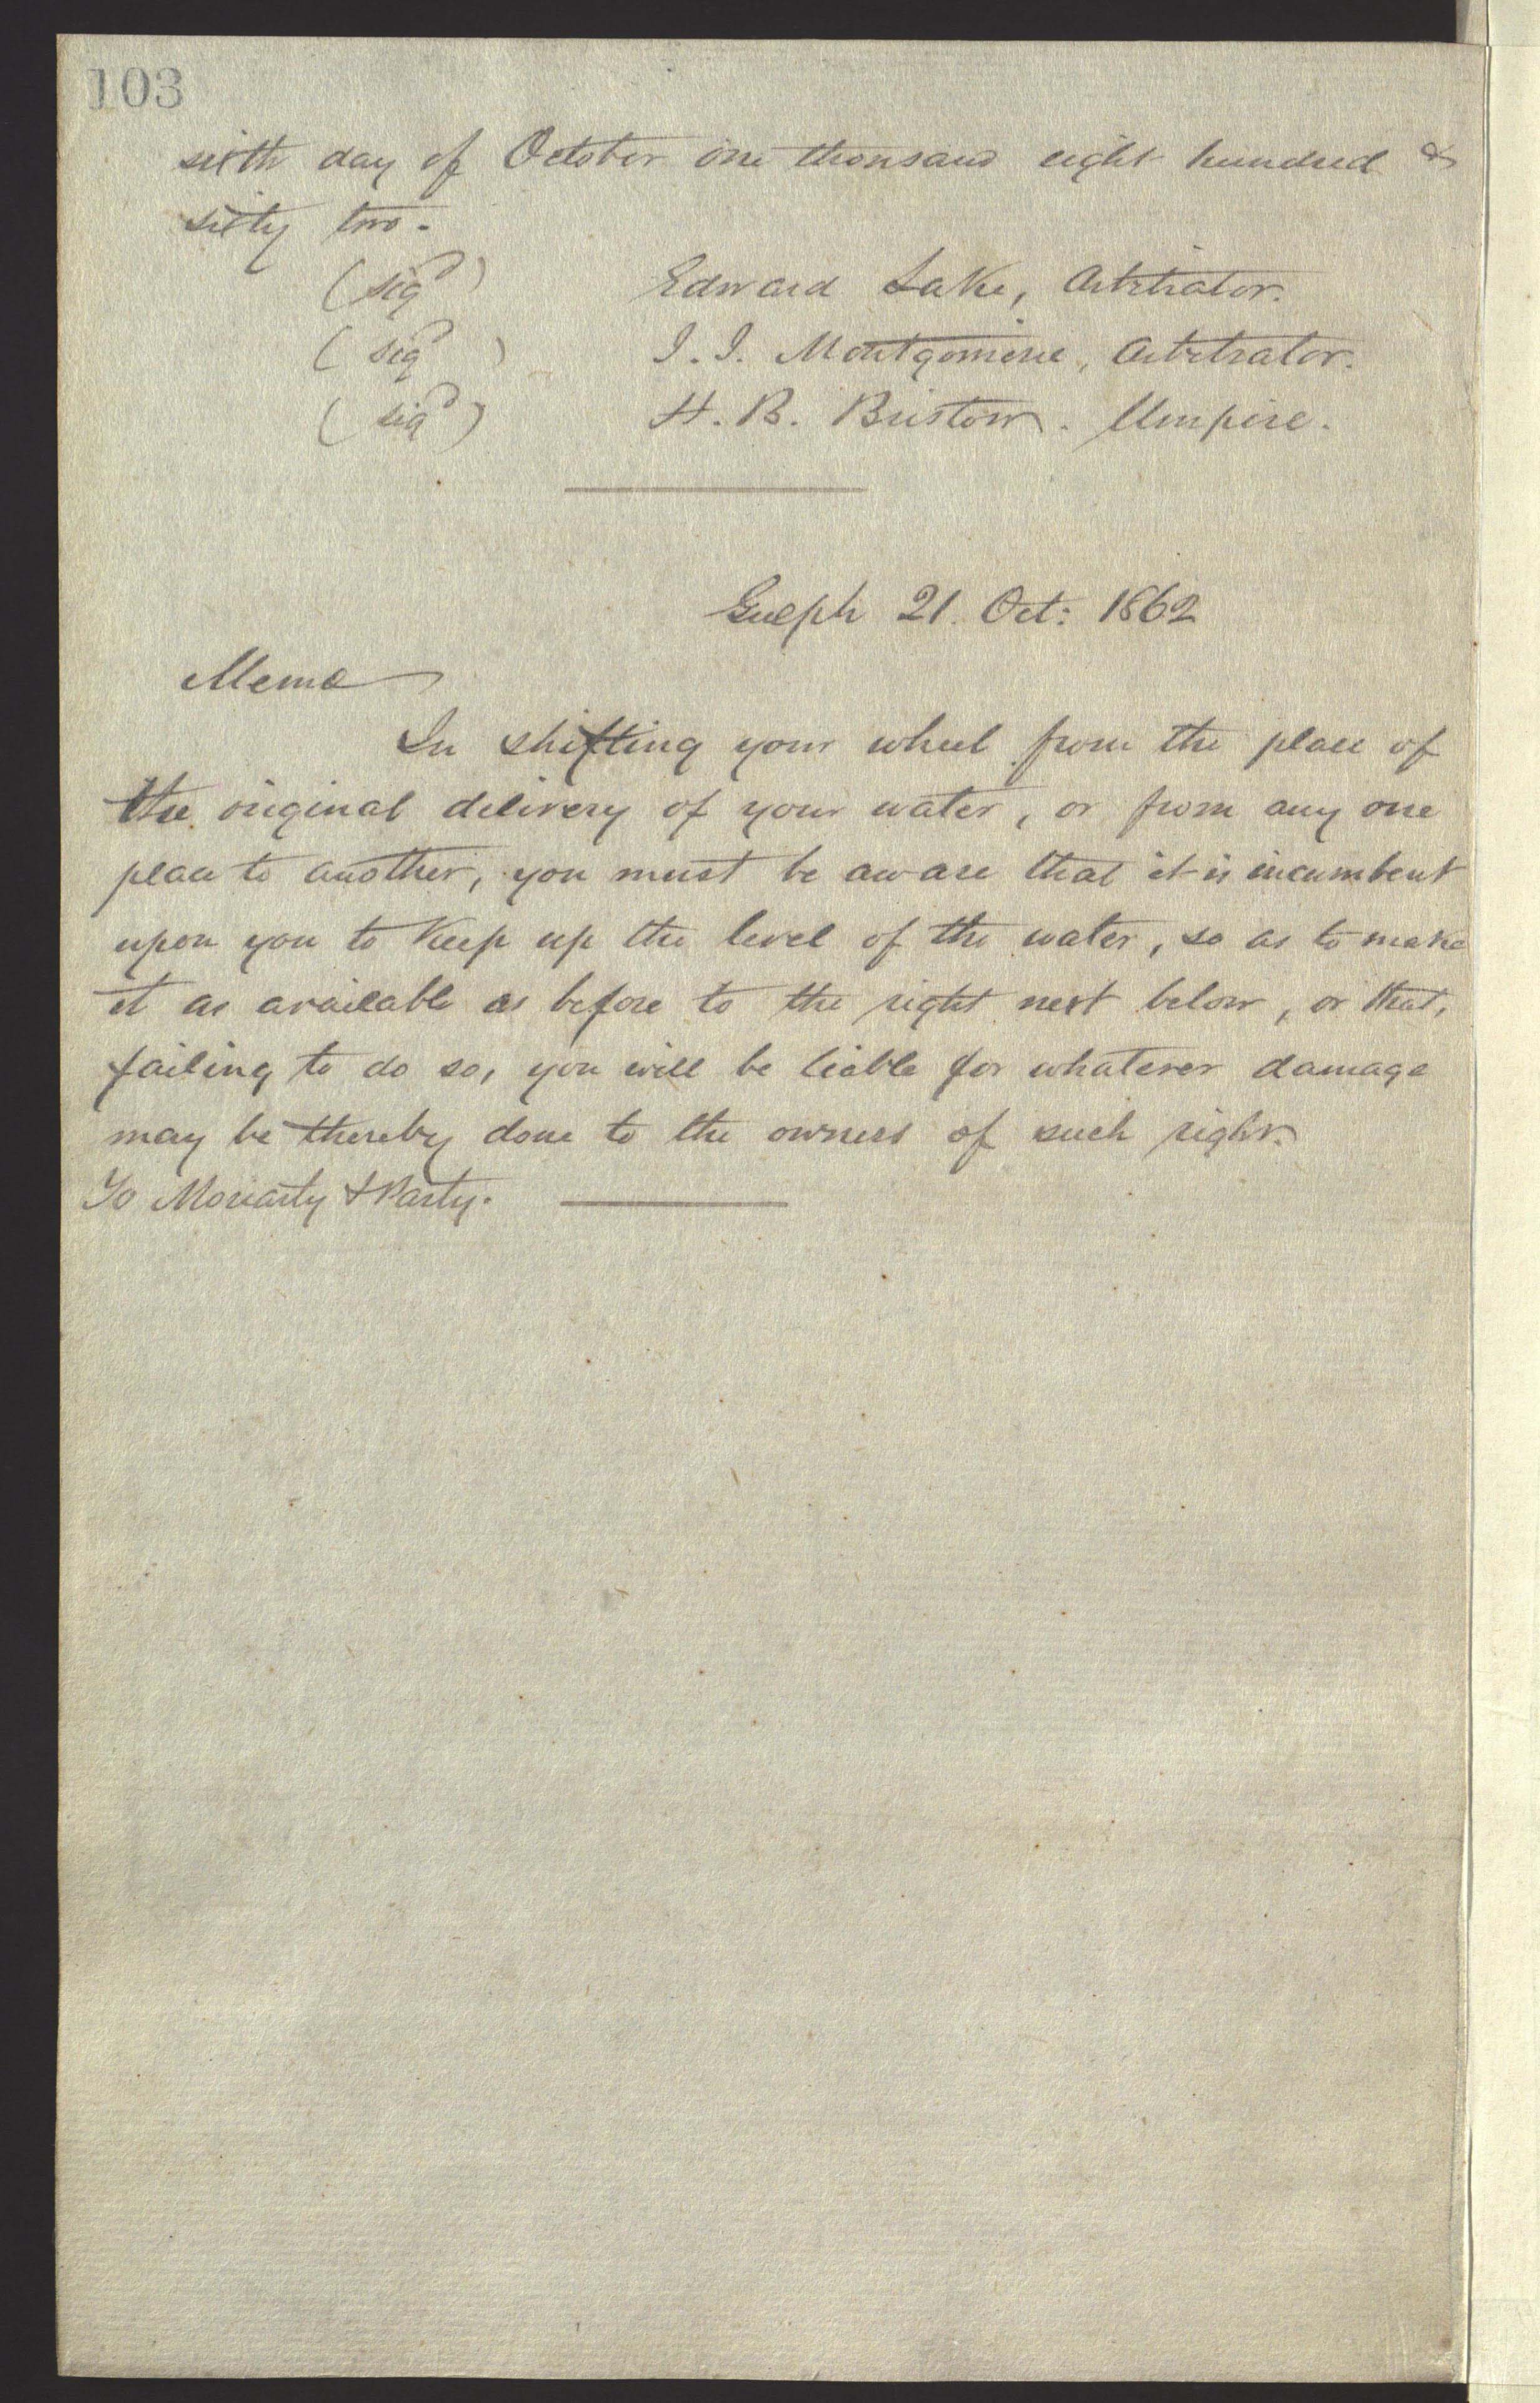 103
sixth day of October one thousand eight hundred &
sixty two.
(sigd) Edward Lake, Arbitrator.
(sigd) I. I. Montgomerie, Arbitrator.
(sigd) H. B. Bristow. Umpire.
Guelph 21. Oct: 1862
Memo
In shifting your wheel from the place of
the original delivery of your water, or from any one
place to another, you must be aware that it is incumbent
upon you to keep up the level of the water, so as to make
it as available as before to the right next below, or that,
failing to do so, you will be liable for whatever damage
may be thereby done to the owners of such right.
To Moriarty & Party.